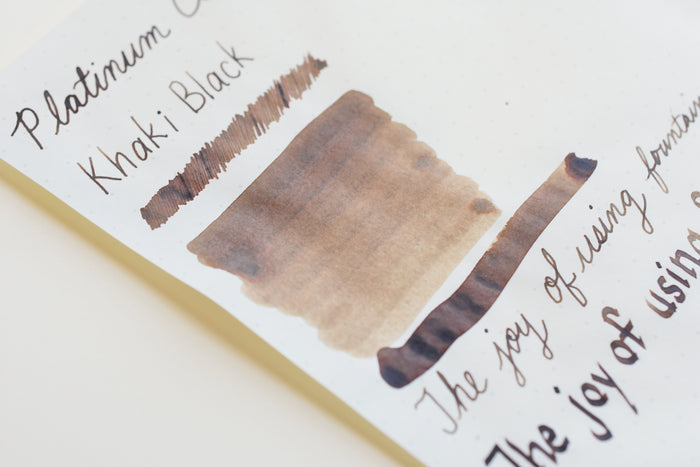 Platinum
Khaki Black
The joy of using fountain
The joy of using